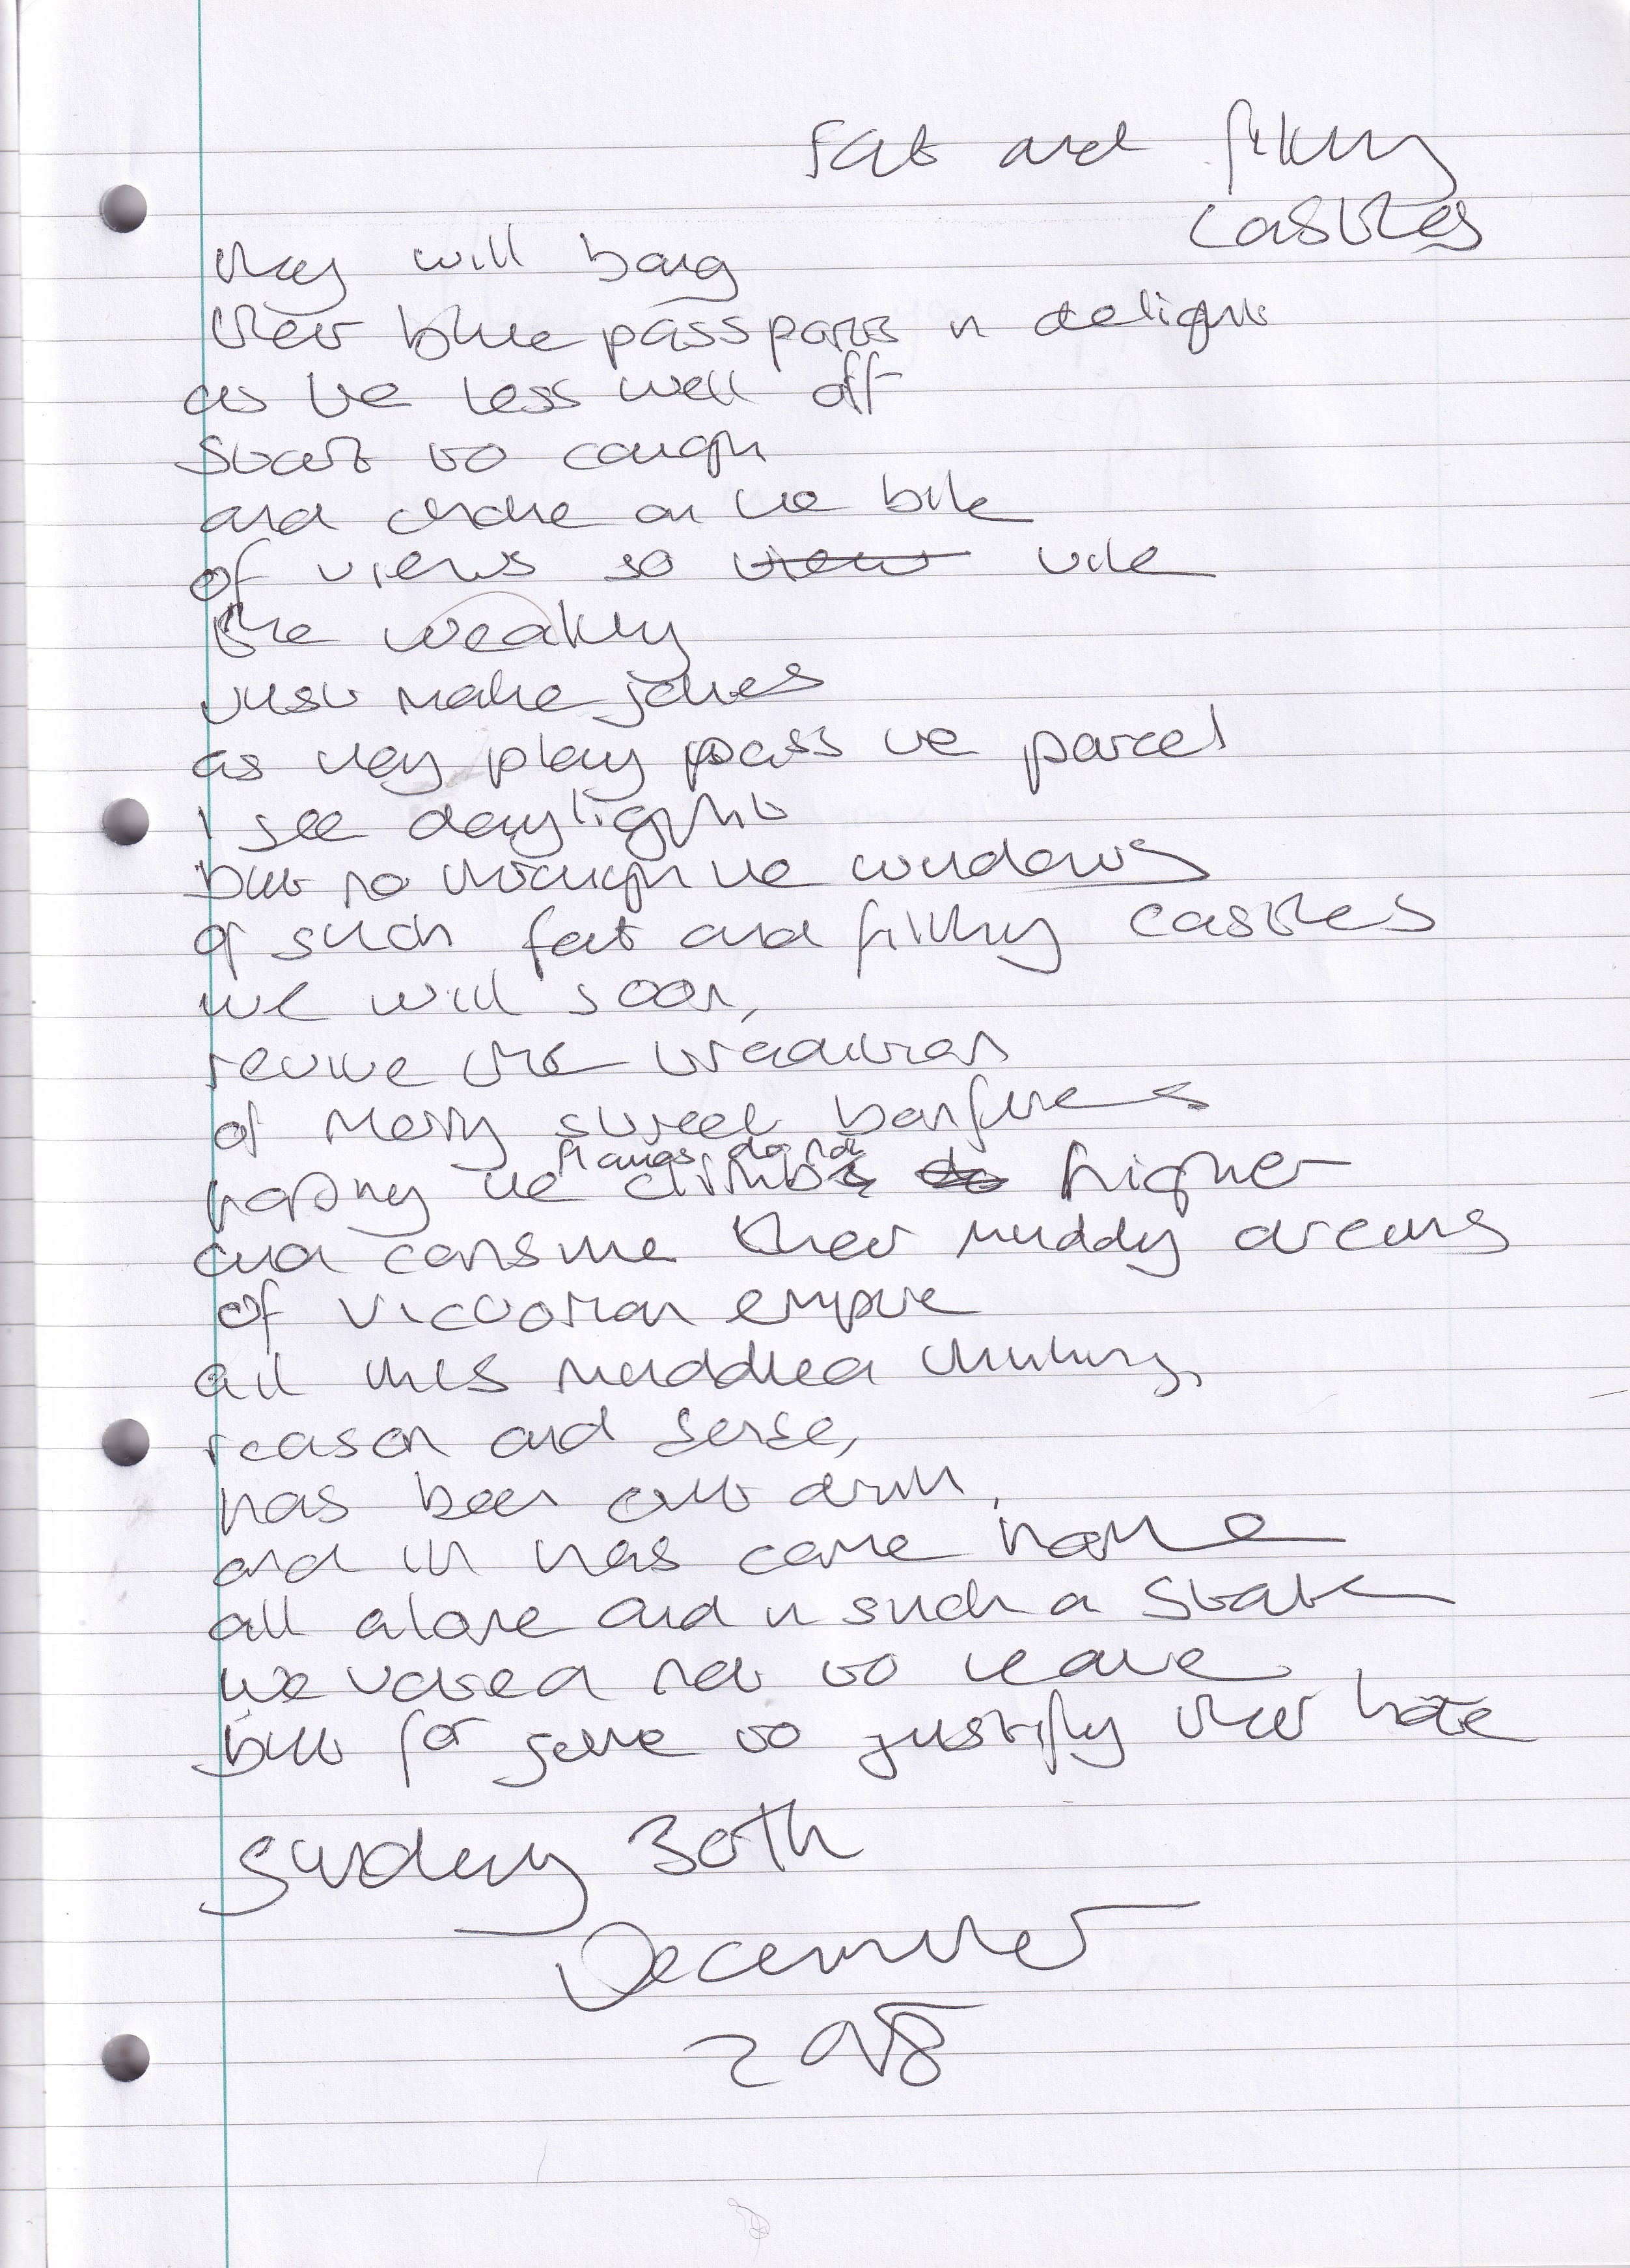 Fat and filthy
castles
they will bang
their blue passports in delight
as the less well off
start to cough
and choke on the bile
of views so view vile
the wealthy
just make jokes
as they play pass the parcel
I see daylight
but no through the windows
of such fat and filthy castles
we will soon,
revive the tradition
of merry street bonfires
flames do not
hoping the climbs do higher
and consume their muddy dreams
of victorian empire
all this muddled thinking,
reason and sense,
has been out drunk,
and it has come home
all alone and in such a state
we voted not to leave
but for some to justify their hate
Sunday 30th
December
2018